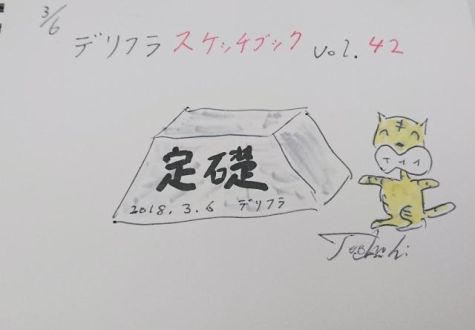 3/6
デリフラ スケッチブック vol. 42
定礎
2018.3.6 デリフラ